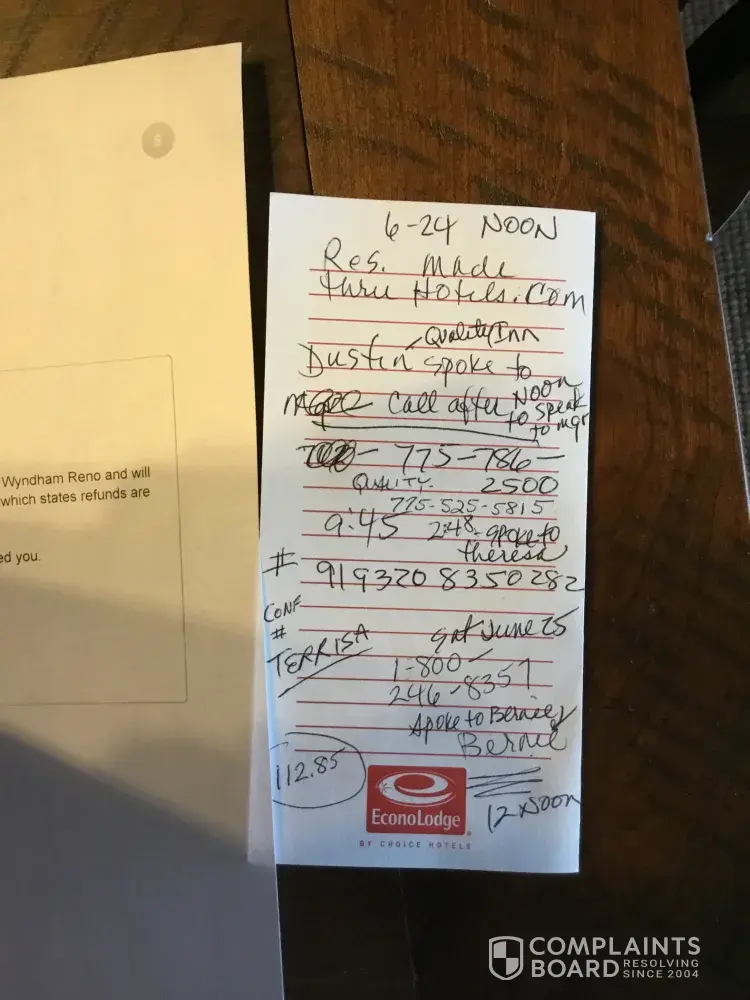 Wyndham Reno and will
which states refunds are
ed you.
6-24 NOON
Res. made
thru Hotels.Com
-Quality Inn
Dustin spoke to
Call after NOON
to speak
to mgr
775-786-
QUALITY- 2500
775-525-5815
9:45 2:48- spoke to
theresa
# 9193208350282
CONF
#
TERRISA
Sat June 25
1-800-
246-8357
Spoke to
Bernie
112.85
12 NOON
EconoLodge
BY CHOICE HOTELS
COMPLAINTS
BOARD RESOLVING
SINCE 2004